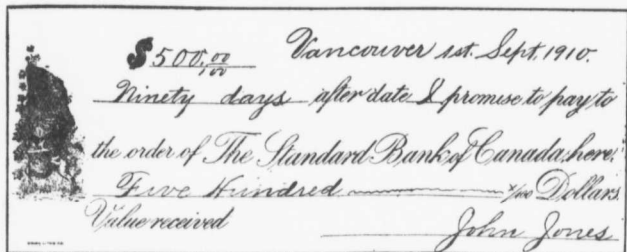 $500.00/100 Vancouver 1st. Sept. 1910.
Ninety days after date I promise to pay to
the order of The Standard Bank of Canada, here.
Five Hundred x/100 Dollars
Value received
John Jones